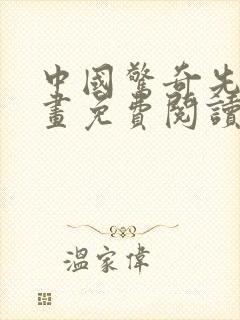 中國驚奇先
畫免費閱讀
溫家偉